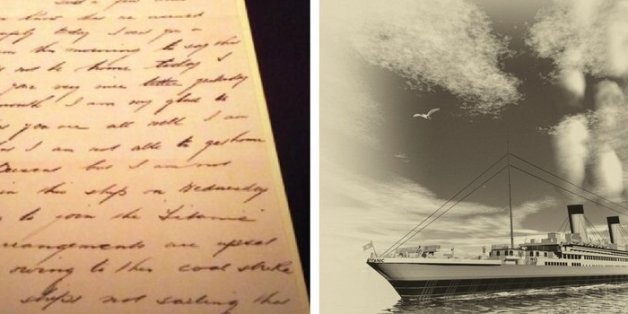 a few
has
today I sent you a
in the morning to say that
not be home today I
your very nice letter yesterday
I am very glad to
you are all well I am
I am not able to get home
but I am not
in this ship on Wednesday
to join the Titanic
arrangements are upset
owing to this coal strike
ships not sailing this
TITANIC